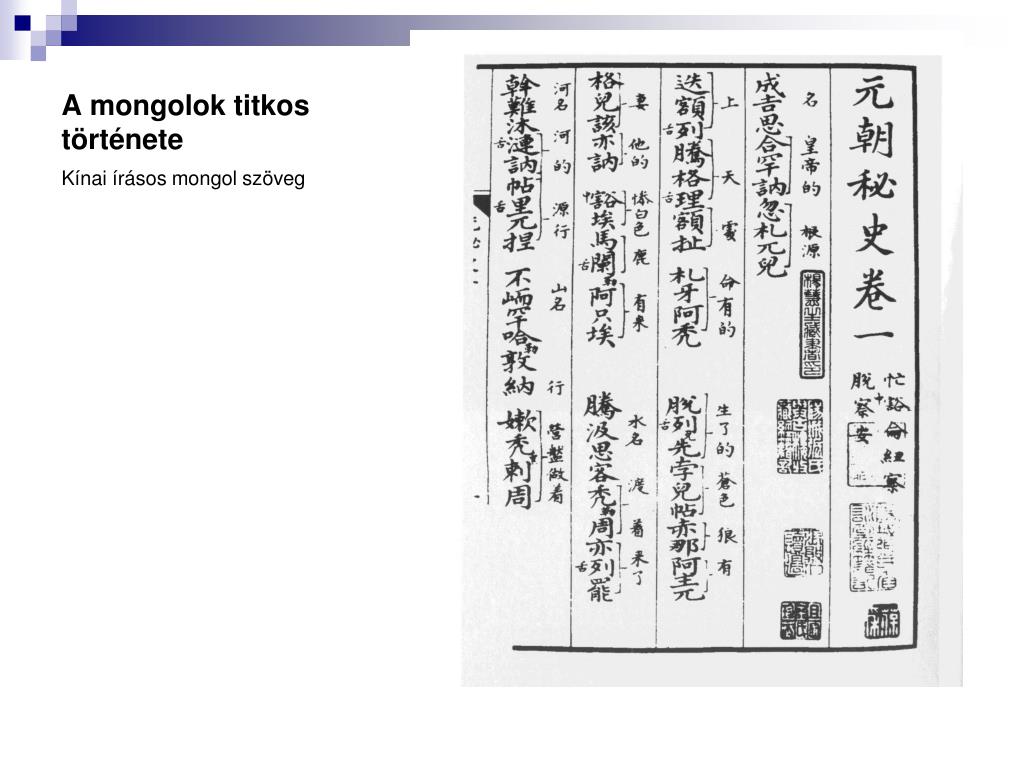 A mongolok titkos
története
Kínai írásos mongol szöveg
元朝秘史卷一
忙豁侖紐察
脫察安
名 皇帝的 根源
成吉思合罕訥忽札兀兒
上 天 命有的 生了的 蒼色 狼 有
迭額舌列騰格舌理額扯 札牙阿禿 脫舌列先孛兒帖赤那阿主兀
妻 他的 慘白色 鹿 有來 水名 渡 着 來了
格兒該亦訥 中豁埃馬舌闌勒 阿只埃 騰汲思客禿勒周亦舌列罷
河名 河的 源行 山名 行 營盤做着
斡難沐舌漣訥帖舌里兀捏 不峏罕哈勒敦納 嫩禿剌周